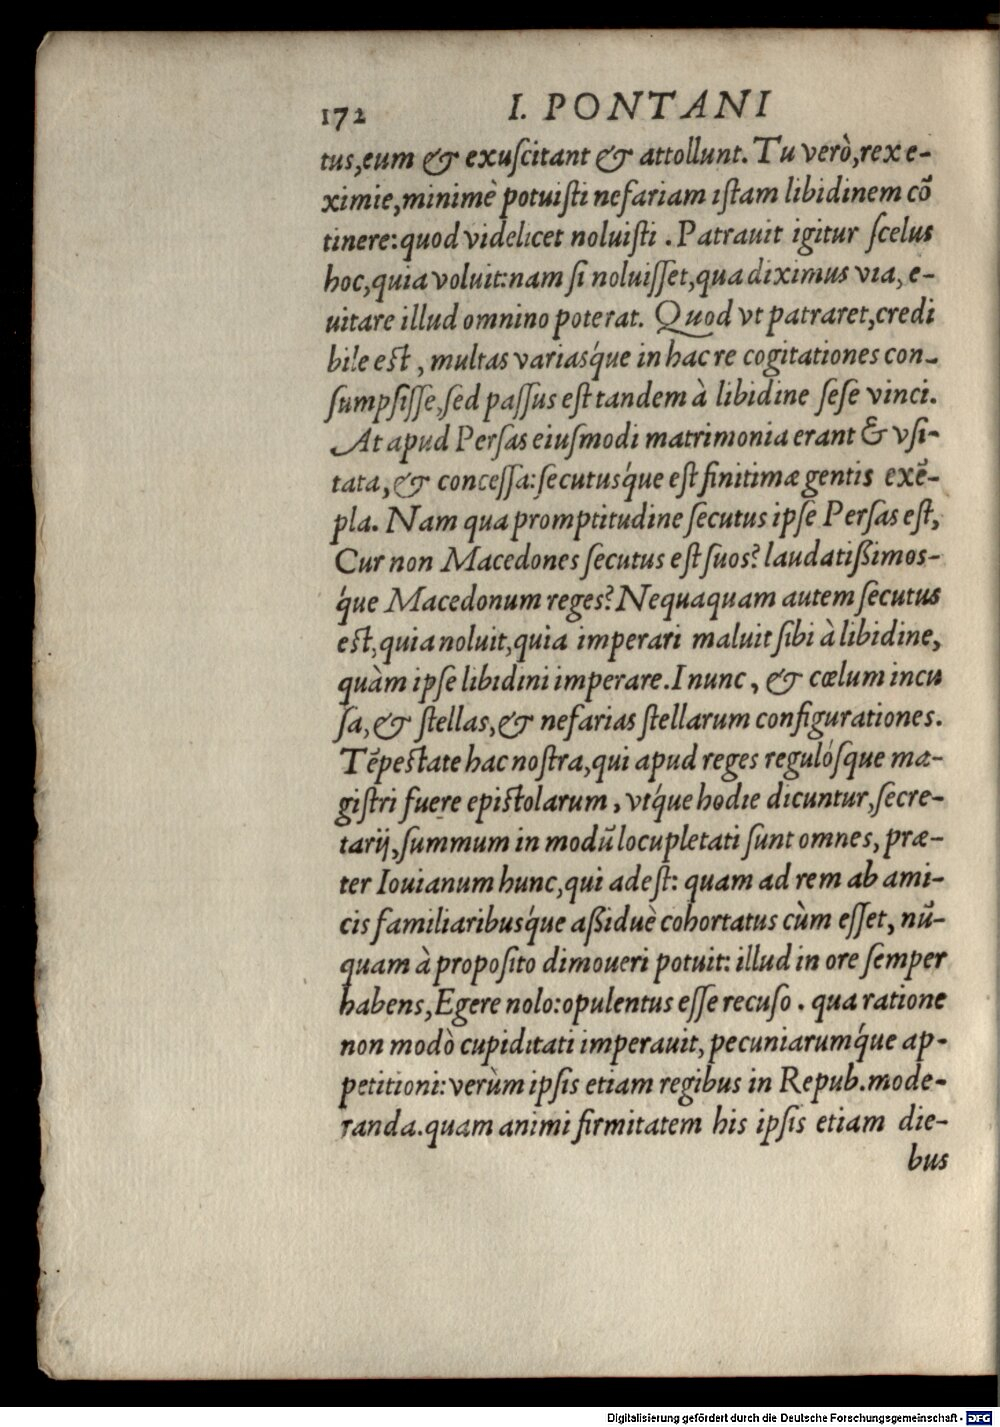 172 I. PONTANI
tus, eum & exuſcitant & attollunt. Tu verò, rex e-
ximie, minimè potuiſti nefariam iſtam libidinem cõ
tinere: quod videlicet noluiſti. Patrauit igitur ſcelus
hoc, quia voluit: nam ſi noluiſſet, qua diximus via, e-
uitare illud omnino poterat. Quod vt patraret, credi
bile eſt, multas variasq́ue in hac re cogitationes con-
ſumpſiſſe, ſed paſſus eſt tandem à libidine ſeſe vinci.
At apud Perſas eiuſmodi matrimonia erant & vſi-
tata, & conceſſa: ſecutusq́ue eſt finitimæ gentis exẽ-
pla. Nam qua promptitudine ſecutus ipſe Perſas eſt,
Cur non Macedones ſecutus eſt ſuos? laudatißimos-
q́ue Macedonum reges? Nequaquam autem ſecutus
eſt, quia noluit, quia imperari maluit ſibi à libidine,
quàm ipſe libidini imperare. I nunc, & cœlum incu
ſa, & ſtellas, & nefarias ſtellarum configurationes.
Tẽpeſtate hac noſtra, qui apud reges regulósque ma-
giſtri fuere epiſtolarum, vtq́ue hodie dicuntur, ſecre-
tarij, ſummum in modũ locupletati ſunt omnes, præ-
ter Iouianum hunc, qui adeſt: quam ad rem ab ami-
cis familiaribusq́ue aßiduè cohortatus cùm eſſet, nũ-
quam à propoſito dimoueri potuit: illud in ore ſemper
habens, Egere nolo: opulentus eſſe recuſo. qua ratione
non modò cupiditati imperauit, pecuniarumq́ue ap-
petitioni: verùm ipſis etiam regibus in Repub. mode-
randa. quam animi firmitatem his ipſis etiam die-
bus
Digitalisierung gefördert durch die Deutsche Forschungsgemeinschaft - DFG